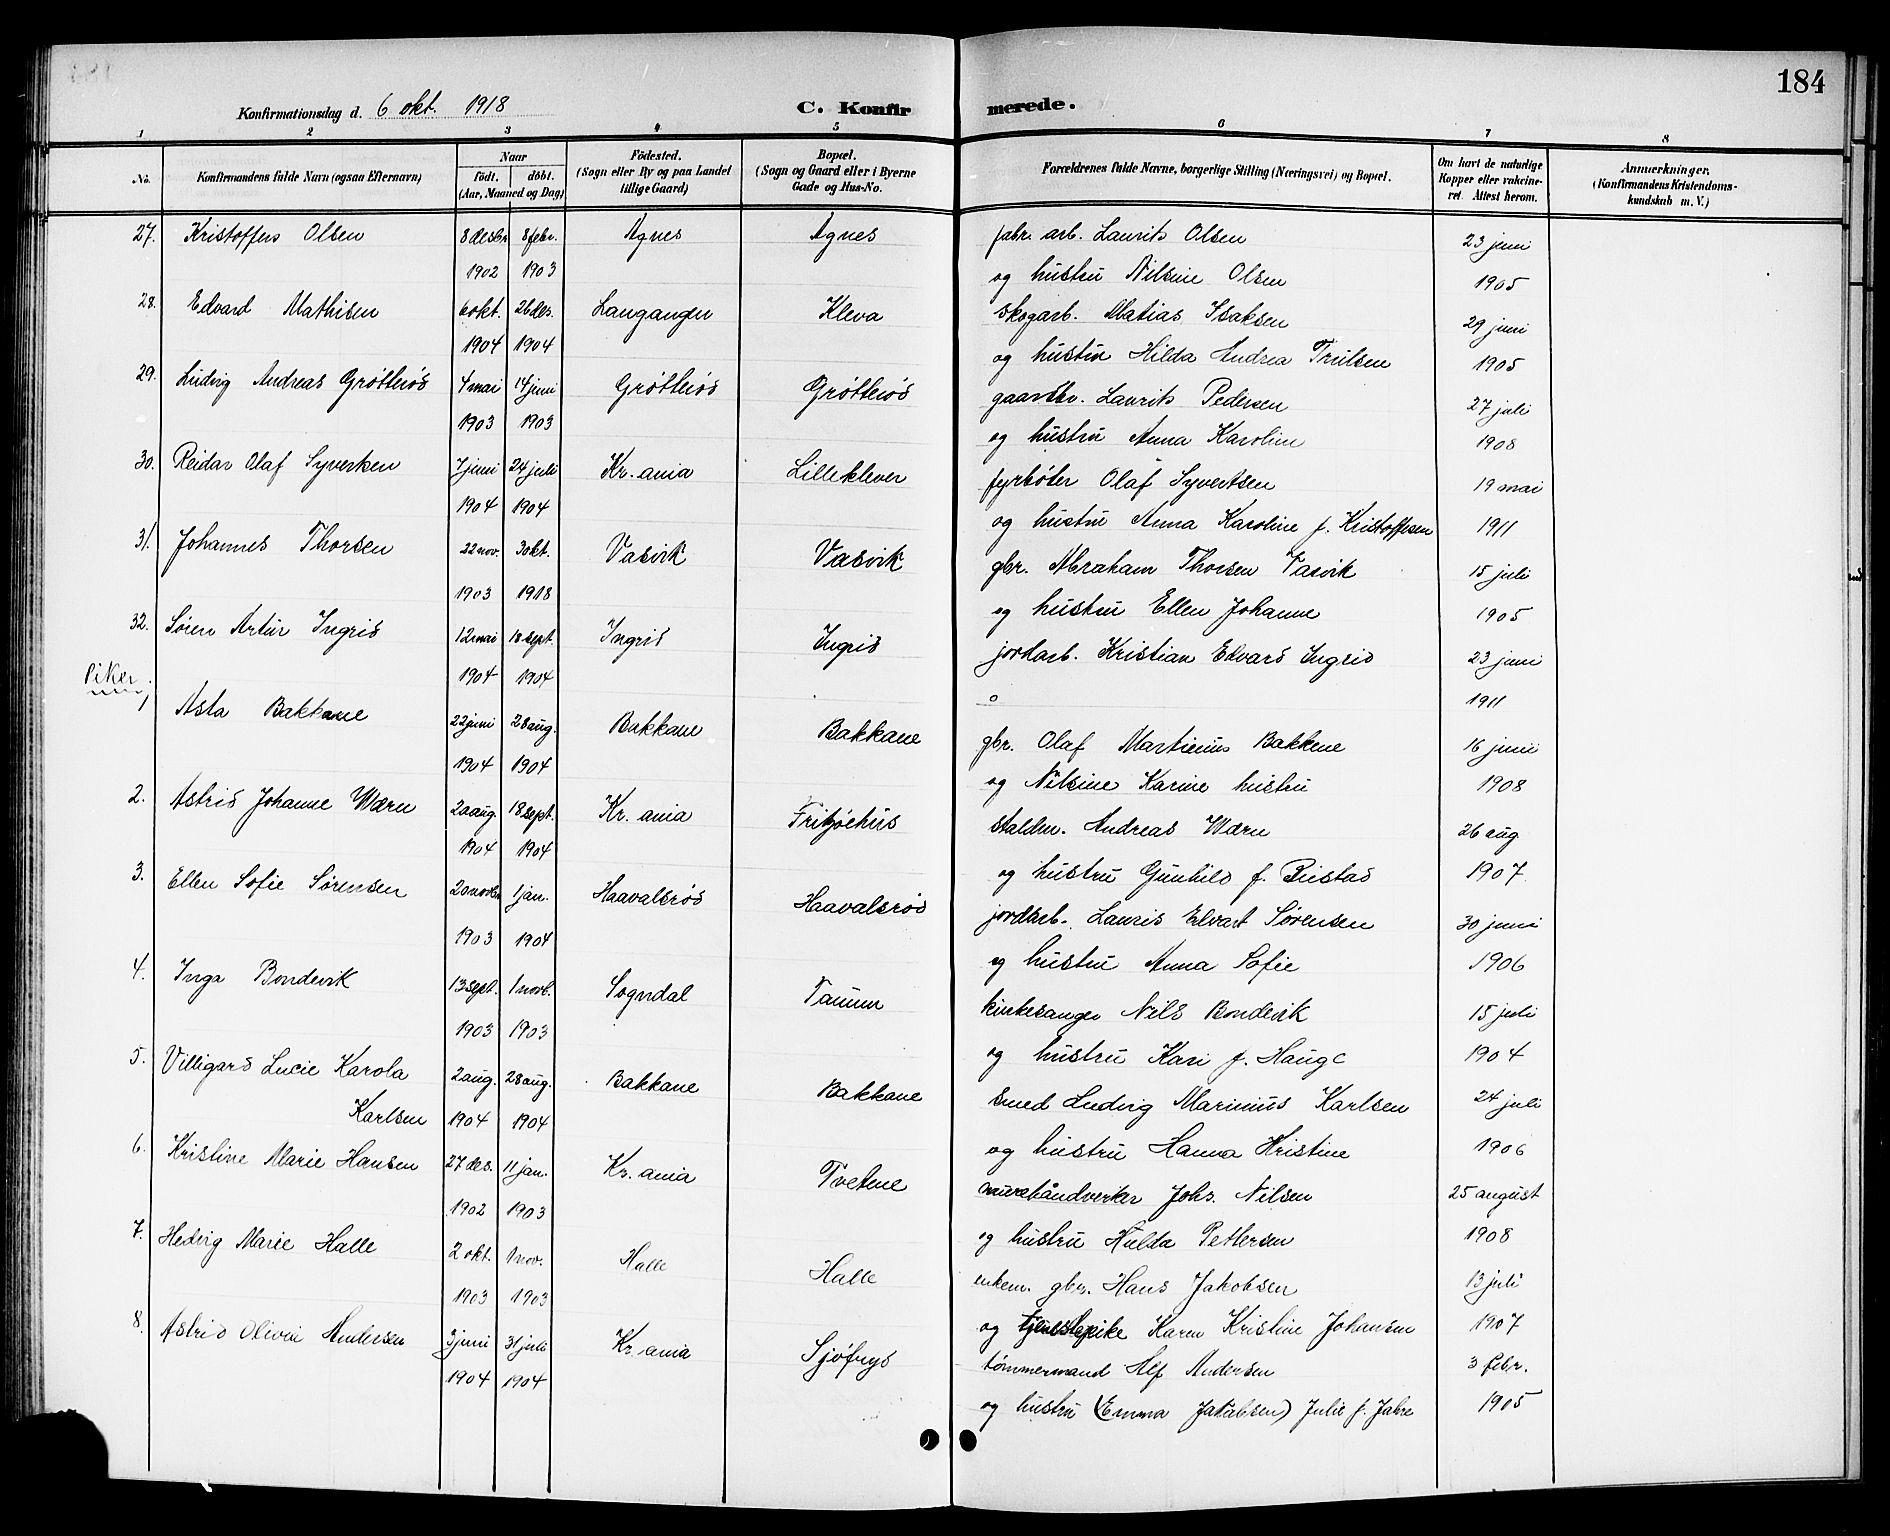 184
Konfirmationsdag d. 6 okt. 1918
C. Konfirmerede.
1 2 3 4 5 6 7 8
No.
Konfirmandens fulde Navn (ogsaa Efternavn)
Naar
födt. döbt.
(Aar, Maaned og Dag)
Födested.
(Sogn eller By og paa Landet
tillige Gaard)
Bopæl.
(Sogn og Gaard eller i Byerne
Gade og Hus-No.
Forældrenes fulde Navne, borgerlige Stilling (Næringsvei) og Bopæl.
Om havt de naturlige
Kopper eller vakcine-
ret. Attest herom.
Anmærkninger.
(Konfirmandens Kristendoms-
kundskab m. V.)
27. Kristoffers Olsen 8 desbr 8 febr. Agnes Agnes fabr. arb. Laurits Olsen 23 juni
1902 1903 og hustru Nilsine Olsen 1905
28. Edvard Mathisen 6 okt. 26 des. Langangen Kleva Skogarb. Matias Isaksen 29 juni
1904 1904 og hustru Hilda Andrea Trulsen 1905
29. Ludvig Andreas Grötterös 4 mai 14 juni Grötterös Grötterös gaardbr. Laurits Pedersen 27 juli
1903 1903 og hustru Anna Karoline 1908
30. Reidar Olaf Syvertsen 7 juni 24 juli Kr. ania Lilleklever fyrbøter Olaf Syvertsen 19 mai
1904 1904 og hustru Anna Karoline f. Kristoffersen 1911
31. Johannes Thorsen 22 nov. 3 okt. Vasvik Vasvik gbr. Abraham Thorsen Vasvik 15 juli
1903 1918 og hustru Ellen Johanne 1905
32. Søren Artur Ingris 12 mai 18 sept. Ingris Ingris jordarb. Kristian Edvard Ingris 23 juni
1904 1904 o 1911
Piker
1 Asta Bakkane 22 juni 28 aug. Bakkane Bakkane gbr. Olaf Martinius Bakkene 16 juni
1904 1904 og Nilsine Karine hustru 1908
2. Astrid Johanne Wærn 20 aug. 18 sept. Kr. ania Fritzøehus staldm. Andreas Wærn 26 aug
1904 1904 og hustru Gunhild f. 1907
3. Ellen Sofie Sørensen 20 novbr 1 jan. Haavalsrös Haavalsrös jordarb. Lauris Edvart Sørensen 30 juni
1903 1904 og hustru Anna Sofie 1906
4. Inga Bondevik 13 sept. 1 novb. Sogndal Taum kirkesanger Nils Bondevik 15 juli
1903 1903 og hustru Kari f. Hauge 1904
5. Villigard Lucie Karola 2 aug. 28 aug. Bakkane Bakkane smed Ludvig Marinius Karlsen 24 juli
Karlsen 1904 1904 og hustru Hanna Kristine 1906
6. Kristine Marie Hansen 27 des. 11 jan. Kr. ania Tvetene murehåndverker Johs. Nilsen 25 august
1902 1903 og hustru Hulda Pettersen 1908
7. Hedvig Marie Halle 2 okt. 1 nov. Halle Halle enkem. gbr. Hans Jakobsen 13 juli
1903 1903 og tjenestepike Karen Kristine Johansen 1907
8. Astrid Olivie Andersen 3 juni 31 juli Kr. ania Sjøfryd tømmermand Alf Andersen 3 febr.
1904 1904 og hustru (Emma Jakobsen) Julie f. Jahre 1905